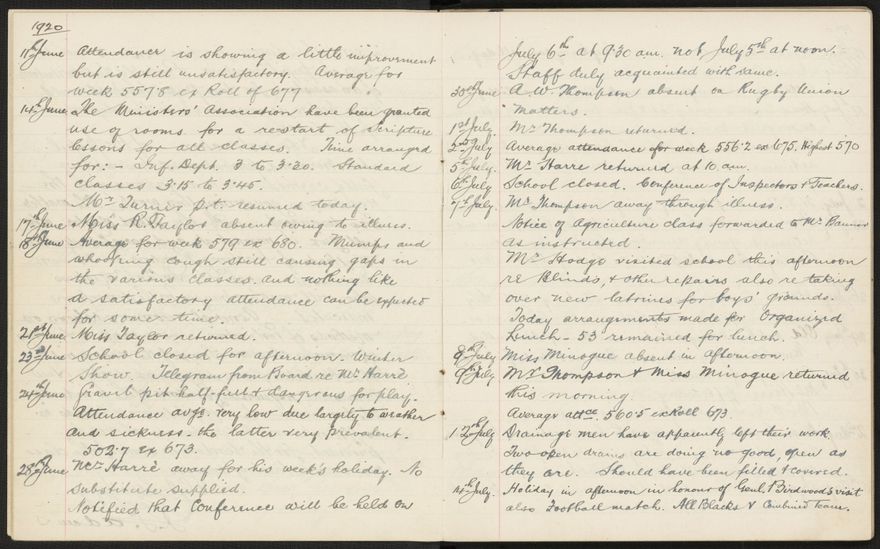 1920
11th June Attendance is showing a little improvement
but is still unsatisfactory. Average for
week 557·8 ex Roll of 677
14th June The Ministers' Association have been granted
use of rooms for a restart of Scripture
lessons for all classes. Time arranged
for:- Inf. Dept. 3 to 3·30. Standard
classes 3·15 to 3·45.
Mr Turner p.t. resumed today.
17th June Miss R. Taylor absent owing to illness.
18th June Average for week 579 ex 680. Mumps and
whooping cough still causing gaps in
the various classes and nothing like
a satisfactory attendance can be expected
for some time.
21st June Miss Taylor returned.
23rd June School closed for afternoon. Winter
Show. Telegram from Board re Mr Harré
24th June Gravel pit half-full & dangerous for play.
Attendance avge. very low due largely to weather
and sickness - the latter very prevalent.
502·7 ex 673.
28th June Mr Harré away for his week's holiday. No
substitute supplied.
Notified that Conference will be held on
July 6th at 9·30 am. not July 5th at noon.
Staff duly acquainted with same.
30th June A. W. Thompson absent on Rugby Union
matters.
1st July. Mr Thompson returned.
2nd July Average attendance for week 556·2 ex 675. Highest 570
5th July. Mr Harre returned at 10 am.
6th July School closed. Conference of Inspectors & Teachers.
7th July. Mr Thompson away through illness.
Notice of Agriculture class forwarded to Mr Bannor
as instructed.
Mr Hodge visited school this afternoon
re Blinds, & other repairs also re taking
over new latrines for boys' grounds.
Today arrangements made for Organized
Lunch - 53 remained for lunch.
8th July Miss Minogue absent in afternoon.
9th July Mr Thompson & Miss Minogue returned
this morning.
Average attce. 560·5 ex Roll 673.
12th July Drainage men have apparently left their work
Two open drains are doing no good, open as
they are. Should have been filled & covered.
14th July. Holiday in afternoon in honour of Genl. Birdwood's visit
also Football match. All Blacks v Combined team.